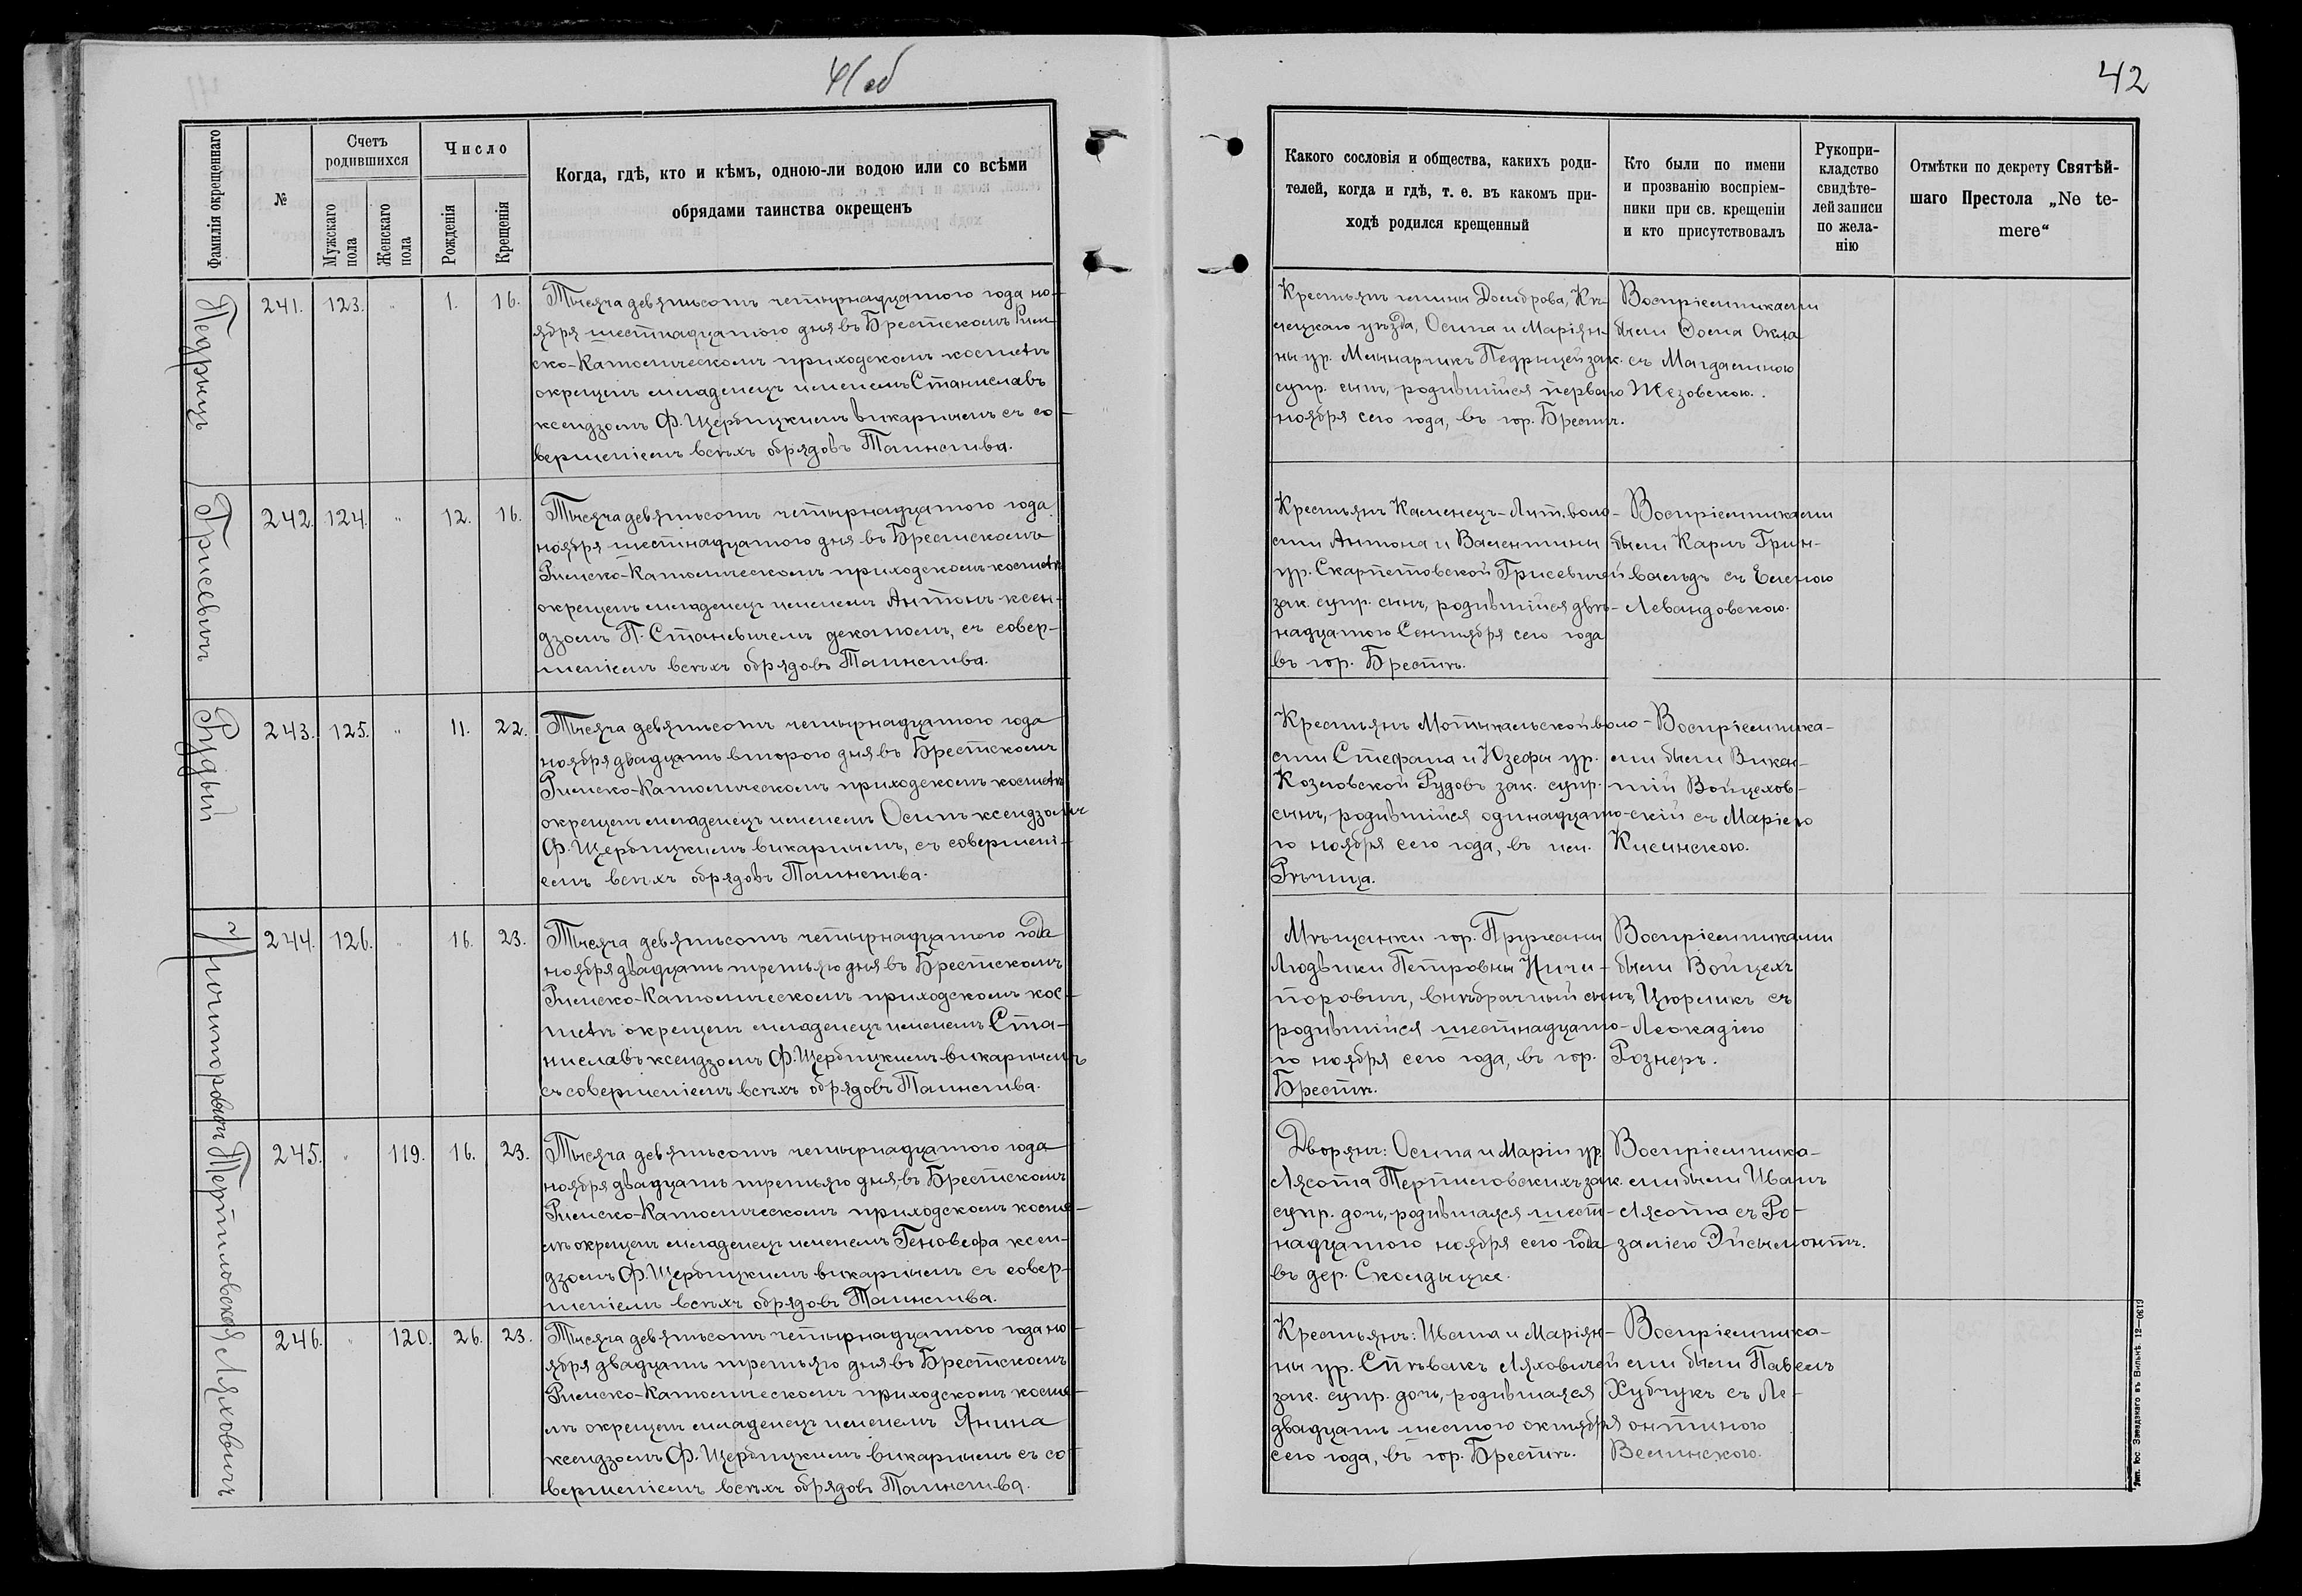 41об
Фамилія окрещеннаго
№
Счетъ
родившихся
Мужскаго
пола
Женскаго
пола
Число
Рожденія
Крещенія
Когда, гдѣ, кто и кѣмъ, одною-ли водою или со всѣми
обрядами таинства окрещенъ
Педрыцъ
241. 123. " 1. 16.
Тысяча девятьсотъ четырнадцатого года но-
ября шестнадцатого дня въ Брестскомъ Рим-
ско-Католическомъ приходскомъ костелѣ
окрещенъ младенецъ именемъ Станиславъ
ксендзомъ Ф. Щербицкимъ викарнымъ съ со-
вершеніемъ всѣхъ обрядовъ Таинства.
Грисевичъ
242. 124. " 12. 16.
Тысяча девятьсотъ четырнадцатого года
ноября шестнадцатого дня въ Брестскомъ
Римско-Католическомъ приходскомъ костелѣ
окрещенъ младенецъ именемъ Антонъ ксен-
дзомъ П. Станевичемъ деканомъ, съ совер-
шеніемъ всѣхъ обрядовъ Таинства.
Рудый
243. 125. " 11. 22.
Тысяча девятьсотъ четырнадцатого года
ноября двадцать второго дня въ Брестскомъ
Римско-Католическомъ приходскомъ костелѣ
окрещенъ младенецъ именемъ Осипъ ксендзомъ
Ф. Щербицкимъ викарнымъ, съ совершені-
емъ всѣхъ обрядовъ Таинства.
Ничипоровичъ
244. 126. " 16. 23.
Тысяча девятьсотъ четырнадцатого года
ноября двадцать третьяго дня въ Брестскомъ
Римско-Католическомъ приходскомъ кос-
телѣ окрещенъ младенецъ именемъ Ста-
ниславъ ксендзомъ Ф. Щербицкимъ викарнымъ
съ совершеніемъ всѣхъ обрядовъ Таинства.
Тертиловская
245. " 119. 16. 23.
Тысяча девятьсотъ четырнадцатого года
ноября двадцать третьяго дня, въ Брестскомъ
Римско-Католическомъ приходскомъ косте-
лѣ окрещенъ младенецъ именемъ Геновефа ксен-
дзомъ Ф. Щербицкимъ викарнымъ съ совер-
шеніемъ всѣхъ обрядовъ Таинства.
Ляховичъ
246. " 120. 26. 23.
Тысяча девятьсотъ четырнадцатого года но-
ября двадцать третьяго дня въ Брестскомъ
Римско-Католическомъ приходскомъ косте-
лѣ окрещенъ младенецъ именемъ Янина
ксендзомъ Ф. Щербицкимъ викарнымъ съ со-
вершеніемъ всѣхъ обрядовъ Таинства.
42
Какого сословія и общества, какихъ роди-
телей, когда и гдѣ, т. е. въ какомъ при-
ходѣ родился крещенный
Кто были по имени
и прозванію воспріем-
ники при св. крещеніи
и кто присутствовалъ
Рукопри-
кладство
свидѣте-
лей записи
по жела-
нію
Отмѣтки по декрету Святѣй-
шаго Престола „Ne te-
mere“
Крестьянъ гмины Домброва, Кѣ-
лецкаго уѣзда, Осипа и Маріян-
ны ур. Млынарчикъ Педрыцей зак.
супр. сынъ, родившійся перваго
ноября сего года, въ гор. Брестѣ.
Воспріемниками
были
съ Магдаленою
Жезовскою.
Крестьянъ Каменецъ-Лит. воло-
сти Антона и Валентины
ур. Скарпетовской Грисевичей
зак. супр. сынъ, родившійся двѣ-
надцатого Сентября сего года
въ гор. Брестѣ.
Воспріемниками
были Карлъ Грин-
вальдъ съ Еленою
Левандовскою.
Крестьянъ Мотыкальской воло-
сти Стефана и Юзефы ур.
Козловской Рудовъ зак. супр.
сынъ, родившійся одинадцато-
го ноября сего года, въ им.
Рѣчица.
Воспріемника-
ми были Викен-
тій Войцехов-
скій съ Маріею
Кисинскою.
Мѣщанки гор. Пружаны
Людвики Петровны Ничи-
поровичъ, внѣбрачный сынъ,
родившійся шестнадцато-
го ноября сего года, въ гор.
Брестѣ.
Воспріемниками
были Войцехъ
Цюрликъ съ
Леокадіею
Рознеръ.
Дворянъ: Осипа и Маріи ур.
Лясота Тертиловскихъ зак.
супр. дочь, родившаяся шест-
надцатого ноября сего года
въ дер. Сколдычке.
Воспріемника-
ми были Иванъ
Лясота съ Ро-
заліею Эйсымонтъ.
Крестьянъ: Ивана и Маріян-
ны ур. Спѣвакъ Ляховичей
зак. супр. дочь, родившаяся
двадцать шестого октября
сего года, въ гор. Брестѣ.
Воспріемника-
ми были Павелъ
Хубчукъ съ Ле-
онтиною
Велинскою.
Тип. Іос. Завадзкаго въ Вильнѣ. 12—0619